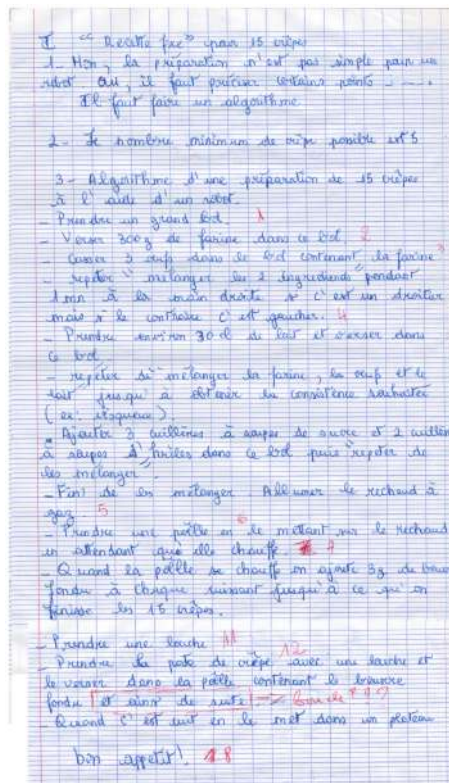 I "Recette fxe" pour 15 crêpes
1- Non, la préparation n'est pas simple pour un
robot. Car, il faut préciser certains points - ----.
Il faut faire un algorithme
2- Le nombre minimum de crêpe possible est 5
3- Algorithme d'une préparation de 15 crêpes
à l'aide d'un robot.
- Prendre un grand bol. 1
- Verser 300g de farine dans ce bol. 2
- Casser 3 oeuf dans le bol contenant la farine 3
- repeter " mélanger les 2 ingredients " pendant
1 mn à la main droite si c'est un droitier
mais si le contraire c'est gaucher. 4
- Prendre environ 30 cl de lait et verser dans
ce bol
- repéter de mélanger la farine, la oeuf et le
lait jusqu'à obtenir la consistence souhaitée
(ex: visqueux).
- Ajouter 3 cuillères à soupes de sucre et 2 cuillère
à soupes d'huiles dans ce bol puis "repeter de
les mélanger"
- Fini de les mélanger. Allumer le rechaud à
gaz. 5
- Prendre une poêlle en le mettant sur le rechaud 6
en attendant que elle chauffe. 7
- Quand la poêlle se chauffe on ajoute 3g de beurre
fondu à chaque cuissant jusqu'à ce qu'on
finisse les 15 crêpes.
- Prendre une louche 11
- Prendre la pate de crêpe avec une louche et 12
le verser dans la poêlle contenant le beurre
fondu et ainsi de suite → boucle ???
- Quand c'est cuit on le met dans un plateau
bon appetit! 18